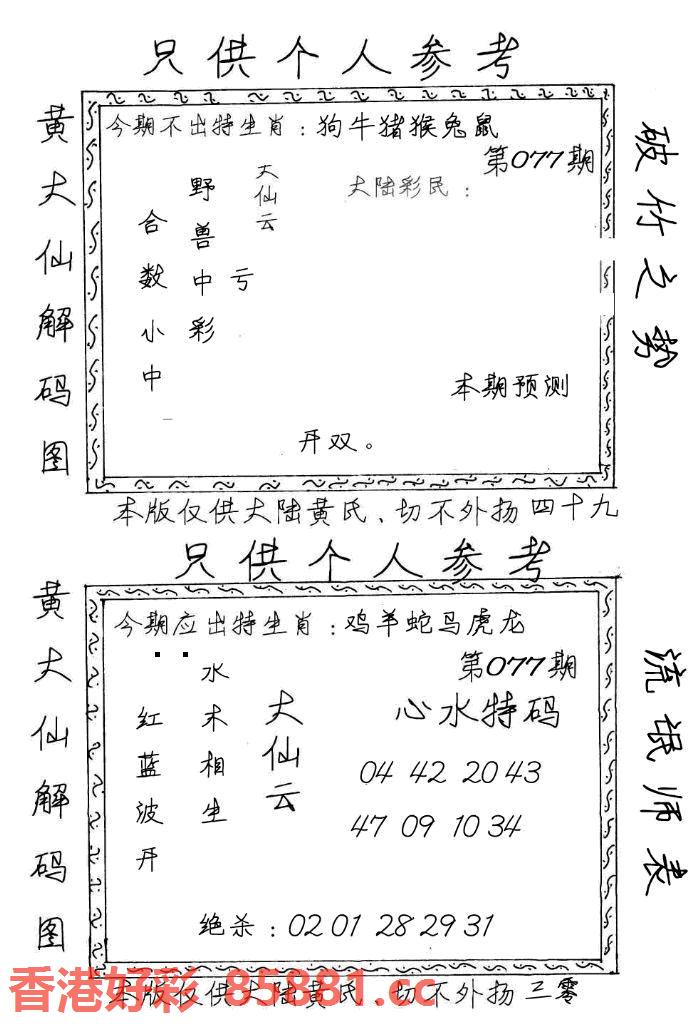 只供个人参考
黄大仙解码图
今期不出特生肖：狗牛猪猴兔鼠
第077期
大仙云
野兽中彩
合数小中
亏
大陆彩民：
本期预测
开双。
破竹之势
本版仅供大陆黄氏、切不外扬四十九
只供个人参考
黄大仙解码图
今期应出特生肖：鸡羊蛇马虎龙
第077期
大仙云
水木相生
红蓝波开
心水特码
04 42 20 43
47 09 10 34
绝杀：02 01 28 29 31
流氓师表
本版仅供大陆黄氏、切不外扬三零
香港好彩 85881.cc